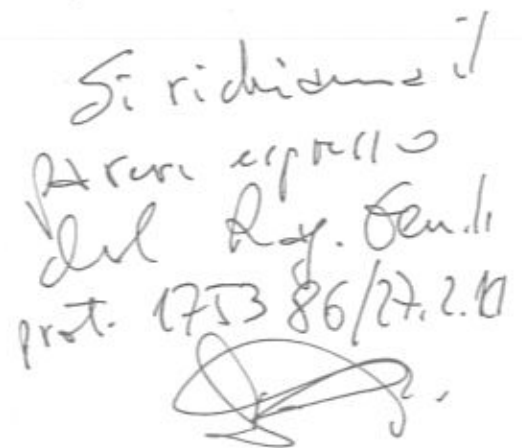 Si richiama il
parere espresso
del Rag. Gen.le
prot. 175386/27.2.10